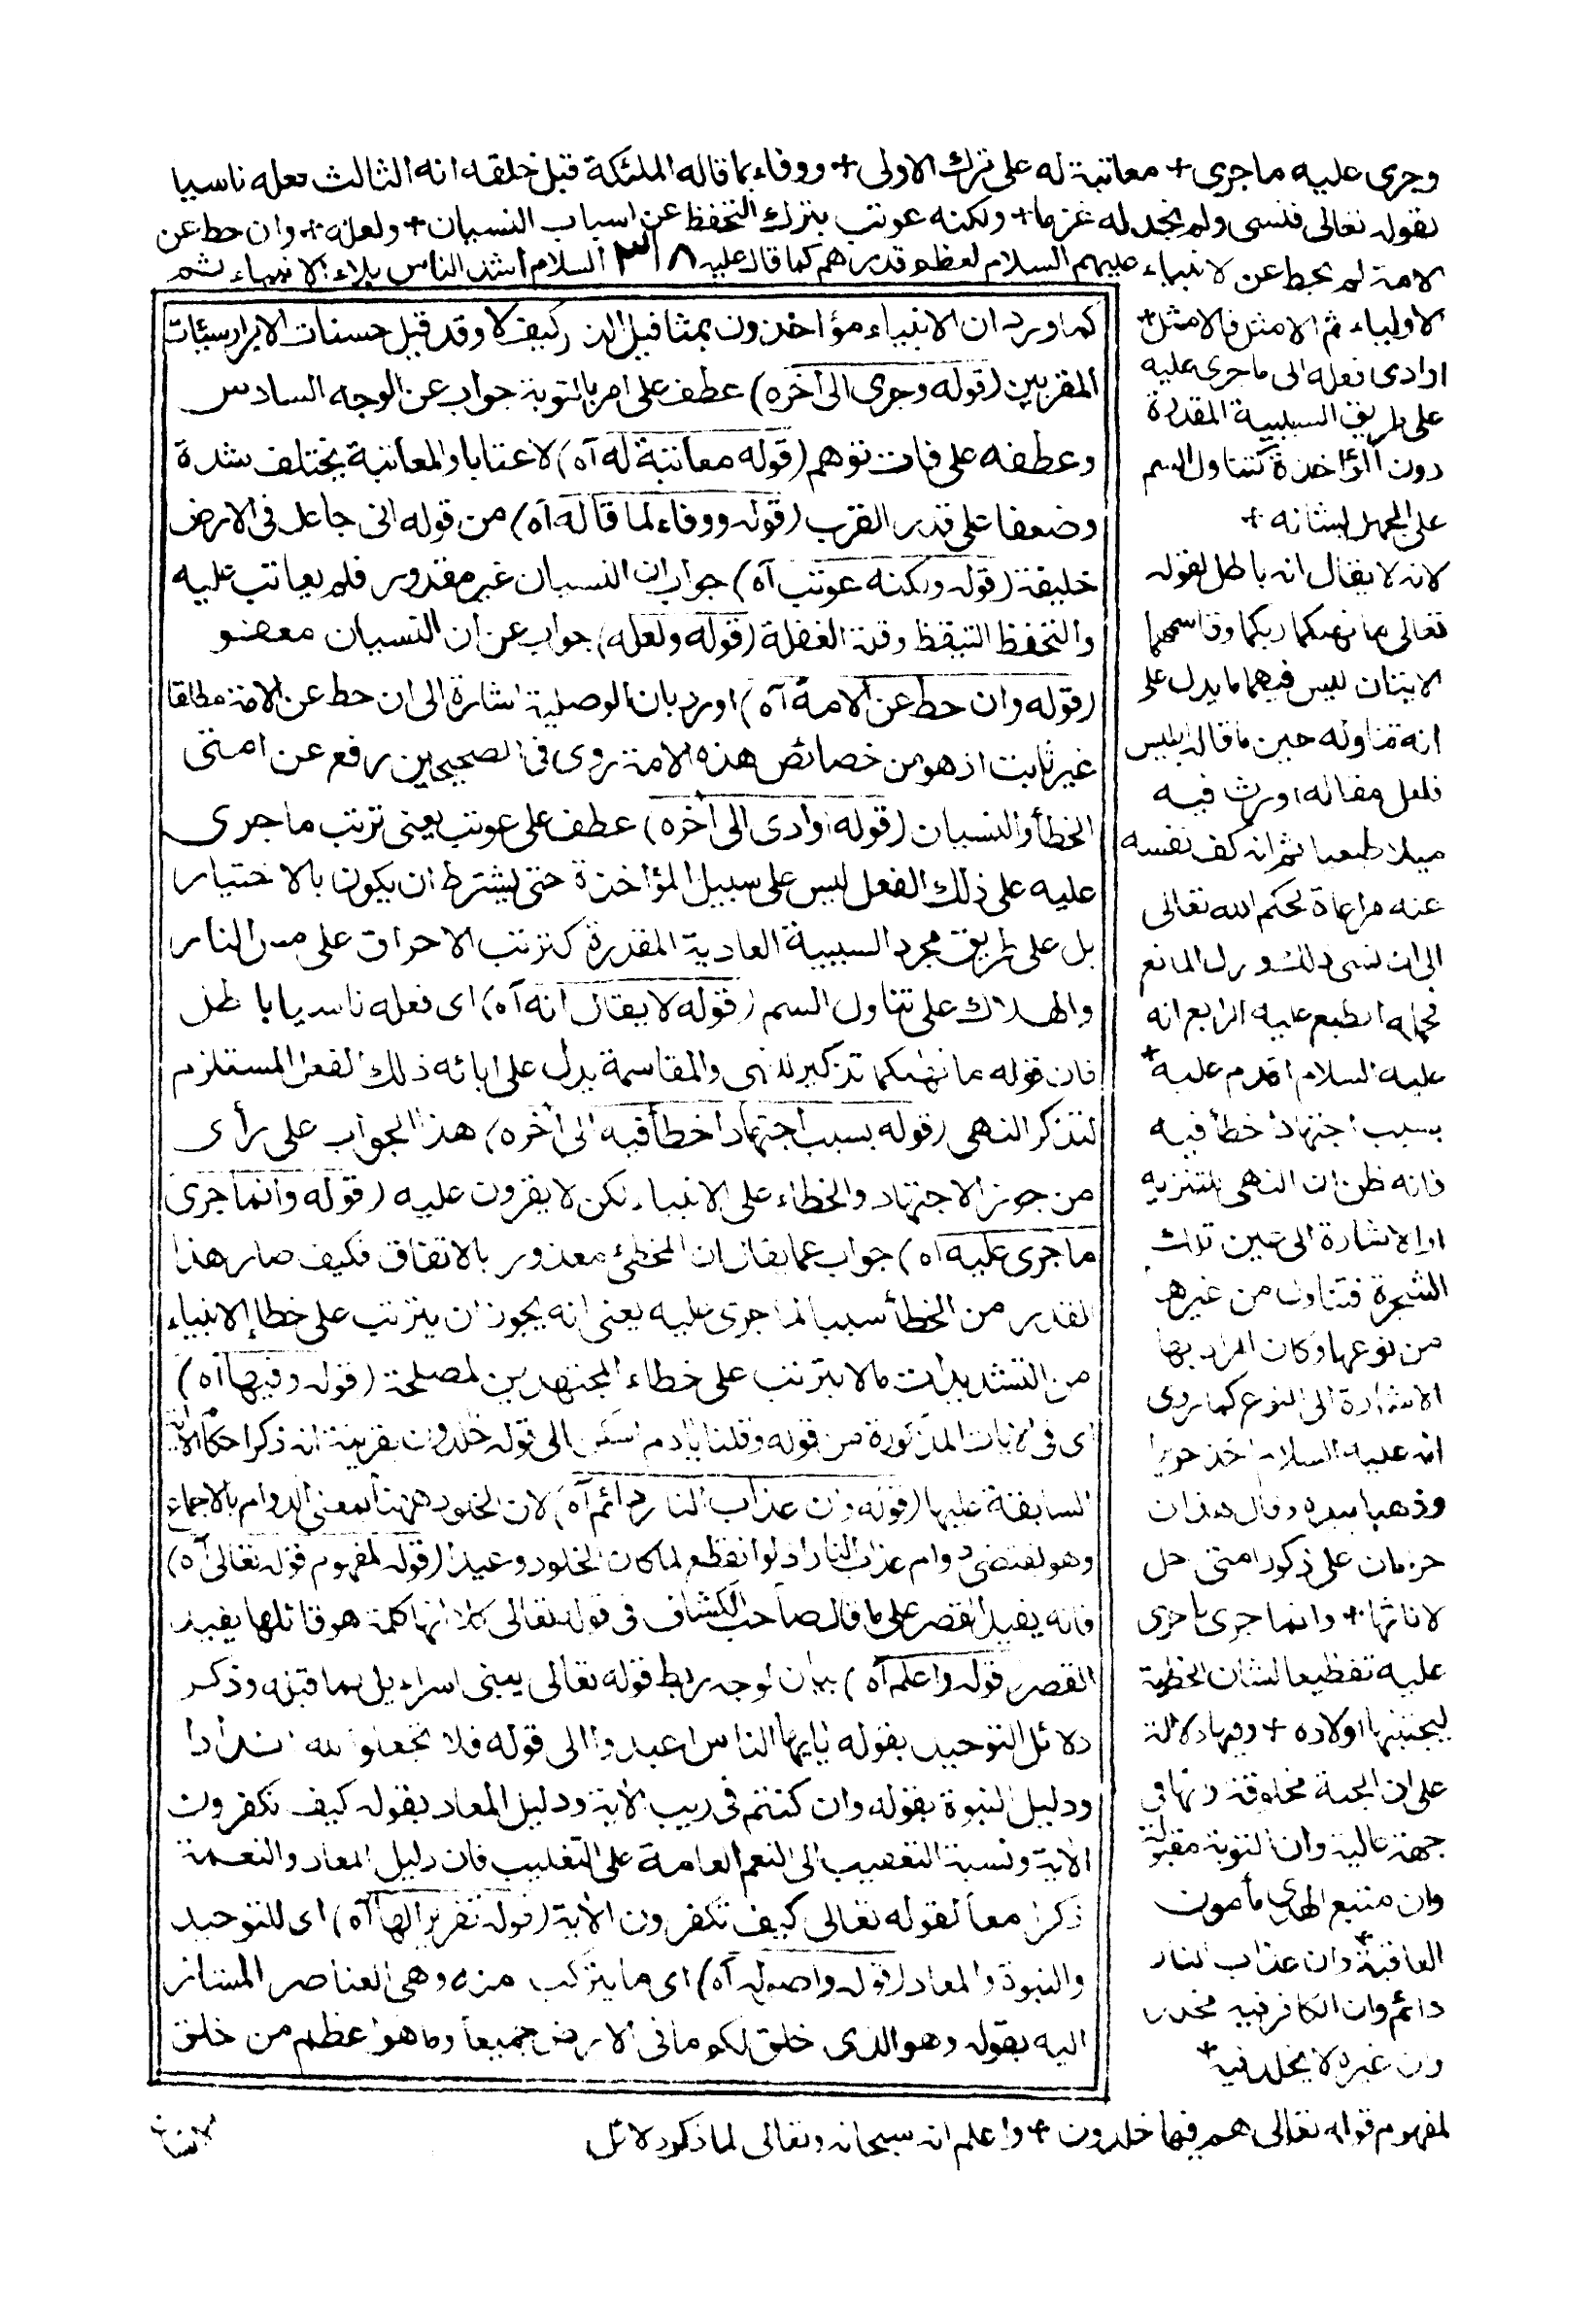 وجرى عليه ماجرى + معاتبة له على ترك الاولى + ووفاء بما قاله الملئكة قبل خلقه انه الثالث فعله ناسيا
بقوله تعالى فنسى ولم نجد له عزما + ولكنه عوتب بترك التحفظ عن اسباب النسيان + ولعله + وان حط عن
الامة لم يحط عن الانبياء عليهم السلام لعظم قدرهم كما قال عليه ٣١٨ السلام اشد الناس بلاء الانبياء ثم
الاولياء ثم الامثل فالامثل +
او ادى فعله الى ماجرى عليه
على طريق السببية المقدرة
دون المؤاخذة كتناول السم
على الجهل بشانه +
لانه لا يقال انه باطل لقوله
تعالى ما نهٰىكما ربكما وقاسمهما
الايتان ليس فيهما ما يدل على
انه تناوله حين ما قال ابليس
فلعل مقاله اورث فيه
ميلا طبعيا ثم انه كف نفسه
عنه مراعاة لحكم الله تعالى
الى ان نسى ذلك وزال المانع
فحمله الطبع عليه الرابع انه
عليه السلام اقدم عليه +
بسبب اجتهاد اخطأ فيه
فانه ظن ان النهى للتنزيه
او الاشارة الى عين تلك
الشجرة فتناول من غيرها
من نوعها وكان المراد بها
الاشارة الى النوع كما روى
انه عليه السلام اخذ حريرا
وذهبا بيده وقال هذان
حرمان على ذكور امتى حل
لاناثها + وانما جرى ماجرى
عليه تفظيعا لشان الخطيئة
ليجتنبها اولاده + وفيها دلالة
على ان الجنة مخلوقة وانها فى
جهة عالية وان التوبة مقبولة
وان متبع الهدى مأمون
العاقبة + وان عذاب النار
دائم وان الكافر فيه مخلد
وان غيره لا يخلد فيه +
لمفهوم قوله تعالى هم فيها خلدون + واعلم انه سبحانه وتعالى لما ذكر دلائل
كما ورد ان الانبياء مؤاخذون بمثاقيل الذر كيف لا وقد قيل حسنات الابرار سيئات
المقربين (قوله وجرى الى اٰخره) عطف على امر بالتوبة جواب عن الوجه السادس
وعطفه على فات توهم (قوله معاتبة له آه) لا عقابا والمعاتبة يختلف شدة
وضعفا على قدر القرب (قوله ووفاء لما قاله آه) من قوله انى جاعل فى الارض
خليفة (قوله ولكنه عوتب آه) جواب ان النسيان غير مقدور فلم يعاتب عليه
والتحفظ التيقظ وقلة الغفلة (قوله ولعله) جواب عن ان النسيان معفو
(قوله وان حط عن الامة آه) اورد بان الوصلية اشارة الى ان حط عن الامة مطلقا
غير ثابت اذ هو من خصائص هذه الامة روى فى الصحيحين رفع عن امتى
الخطأ والنسيان (قوله او ادى الى اٰخره) عطف على عوتب يعنى ترتب ماجرى
عليه على ذلك الفعل ليس على سبيل المؤاخذة حتى يشترط ان يكون بالاختيار
بل على طريق مجرد السببية العادية المقدرة كترتب الاحراق على مس النار
والهلاك على تناول السم (قوله لا يقال انه آه) اى فعله ناسيا باطل
فان قوله ما نهٰىكما تذكير للنهى والمقاسمة يدل على ابائه ذلك الفعل المستلزم
لتذكر النهى (قوله بسبب اجتهاد اخطأ فيه الى اٰخره) هذا الجواب على رأى
من جوز الاجتهاد والخطاء على الانبياء لكن لا يقرون عليه (قوله وانما جرى
ماجرى عليه آه) جواب عما يقال ان المخطئ معذور بالاتفاق فكيف صار هذا
القدر من الخطأ سببا لما جرى عليه يعنى انه يجوز ان يترتب على خطإ الانبياء
من التشديدات مالا يترتب على خطاء المجتهدين لمصلحة (قوله وفيها آه)
اى فى الايات المذكورة من قوله وقلنا يٰادم اسكن الى قوله خلدون بقرينة انه ذكر احكام
السابقة عليها (قوله وان عذاب النار دائم آه) لان الخلود ههنا بمعنى الدوام بالاجماع
وهو يقتضى دوام عذاب النار اذ لو انقطع لما كان الخلود وعيدا (قوله لمفهوم قوله تعالى آه)
فانه يفيد القصر على ما قال صاحب الكشاف فى قوله تعالى كلا انها كلمة هو قائلها يفيد
القصر (قوله واعلم آه) بيان لوجه ربط قوله تعالى يبنى اسراءيل بما قبله وذكر
دلائل التوحيد بقوله يٰايها الناس اعبدوا الى قوله فلا تجعلوا لله اندادا
ودليل النبوة بقوله وان كنتم فى ريب الاٰية ودليل المعاد بقوله كيف تكفرون
الاٰية ونسبة التعقيب الى النعم العامة على التغليب فان دليل المعاد والنعمة
ذكرا معا لقوله تعالى كيف تكفرون الاٰية (قوله تقريرا لها آه) اى للتوحيد
والنبوة والمعاد (قوله واصوله آه) اى ما يتركب منه وهى العناصر المشار
اليه بقوله وهو الذى خلق لكم ما فى الارض جميعا وما هو اعظم من خلق